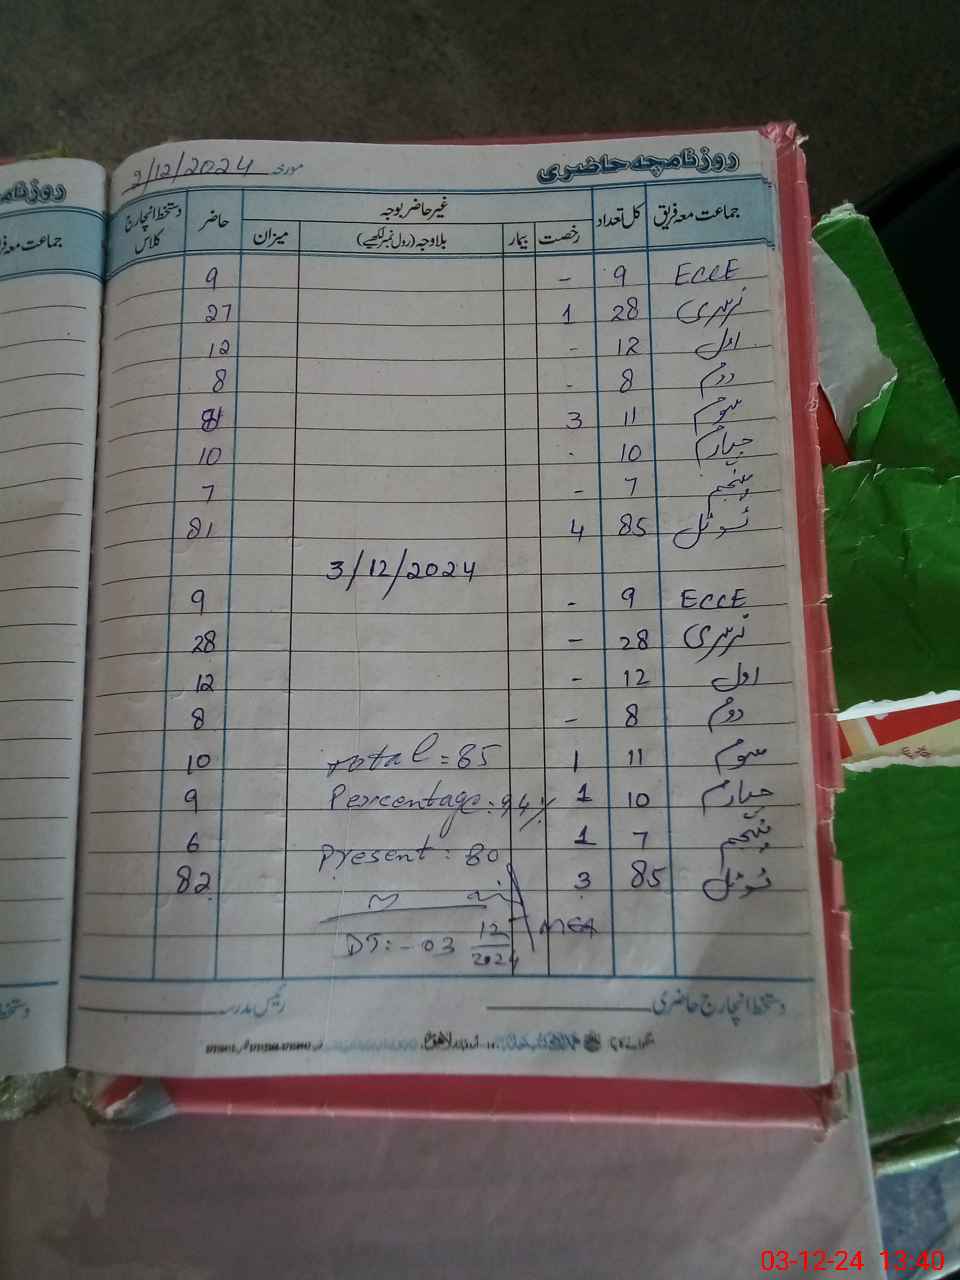 روزنامچہ حاضری مورخہ 2/12/2024
جماعت معہ فریق کل تعداد غیر حاضر بوجہ حاضر دستخط انچارج کلاس
رخصت بیمار بلاوجہ (رول نمبر لکھیے) میزان
ECCE 9 - 9
نرسری 28 1 27
اول 12 - 12
دوم 8 - 8
سوم 11 3 8
چہارم 10 - 10
پنجم 7 - 7
ٹوٹل 85 4 81
3/12/2024
ECCE 9 - 9
نرسری 28 - 28
اول 12 - 12
دوم 8 - 8
سوم 11 1 10
Total = 85
چہارم 10 1 9
Percentage: 94%
پنجم 7 1 6
Present: 80
ٹوٹل 85 3 82
MEA
DT: - 03 12 2024
دستخط انچارج حاضری رئیس مدرسہ
روزنا
جماعت معہ فر
03-12-24 13:40